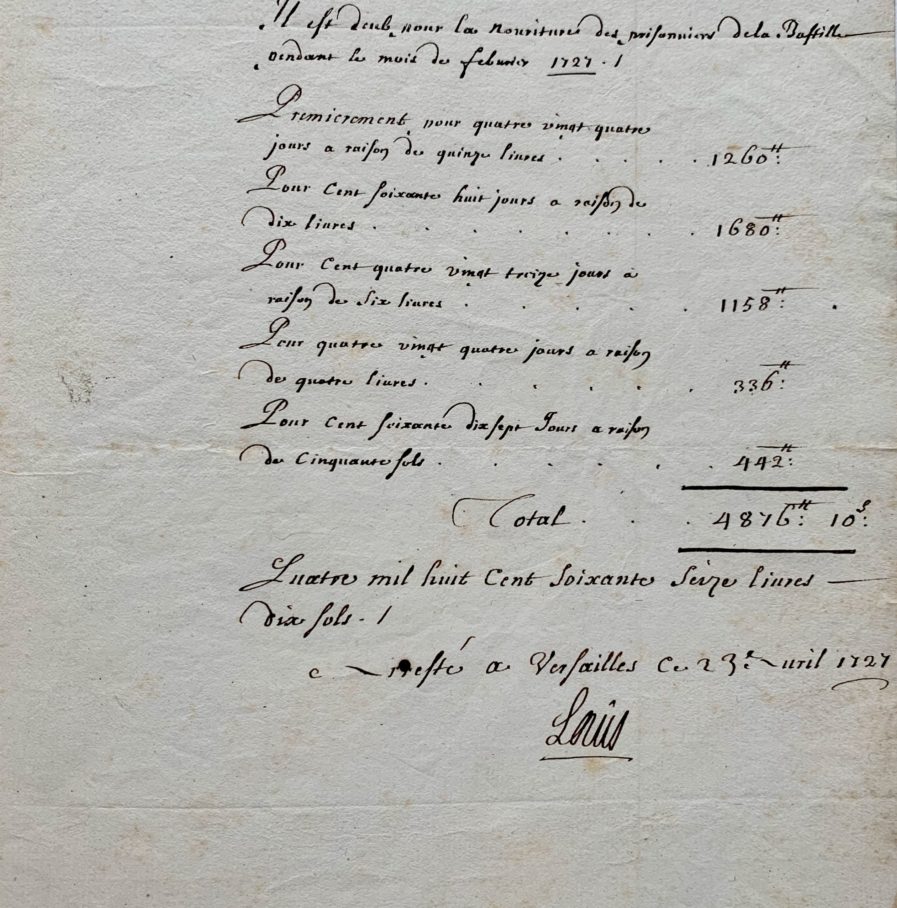 Il est deub pour la nouriture des prisonniers de la Bastille
pendant le mois de feburier 1727. /
Premierement pour quatre vingt quatre
jours a raison de quinze livres . . . . . 1260ᵗᵗ:
Pour Cent soixante huit jours a raison de
dix livres . . . . . . . . 1680ᵗᵗ:
Pour Cent quatre vingt treize jours a
raison de Six livres . . . . . 1158ᵗᵗ: .
Pour quatre vingt quatre jours a raison
de quatre livres . . . . . . 336ᵗᵗ:
Pour Cent soixante dix sept Jours a raison
de Cinquante sols . . . . . . 442ᵗᵗ:
Total . . . . 4876ᵗᵗ: 10ˢ:
Quatre mil huit Cent Soixante Seize livres
dix sols . /
Arresté a Versailles Ce 23ᵉ Avril 1727
Louis